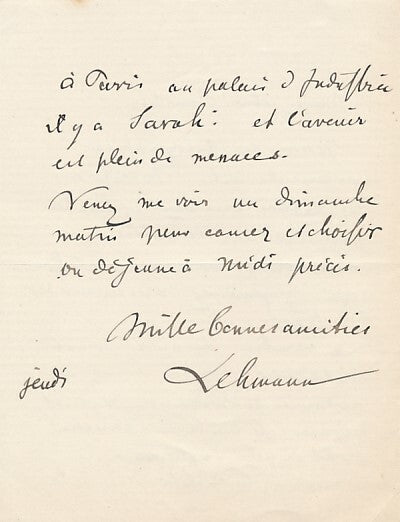 à Paris au palais d'Industrie
il y a Sarah: et l'avenir
est plein de menaces.
Venez me voir un dimanche
matin pour causer et choisir
on déjeune à midi précis.
Mille bonnes amitiés
jeudi Lehmann